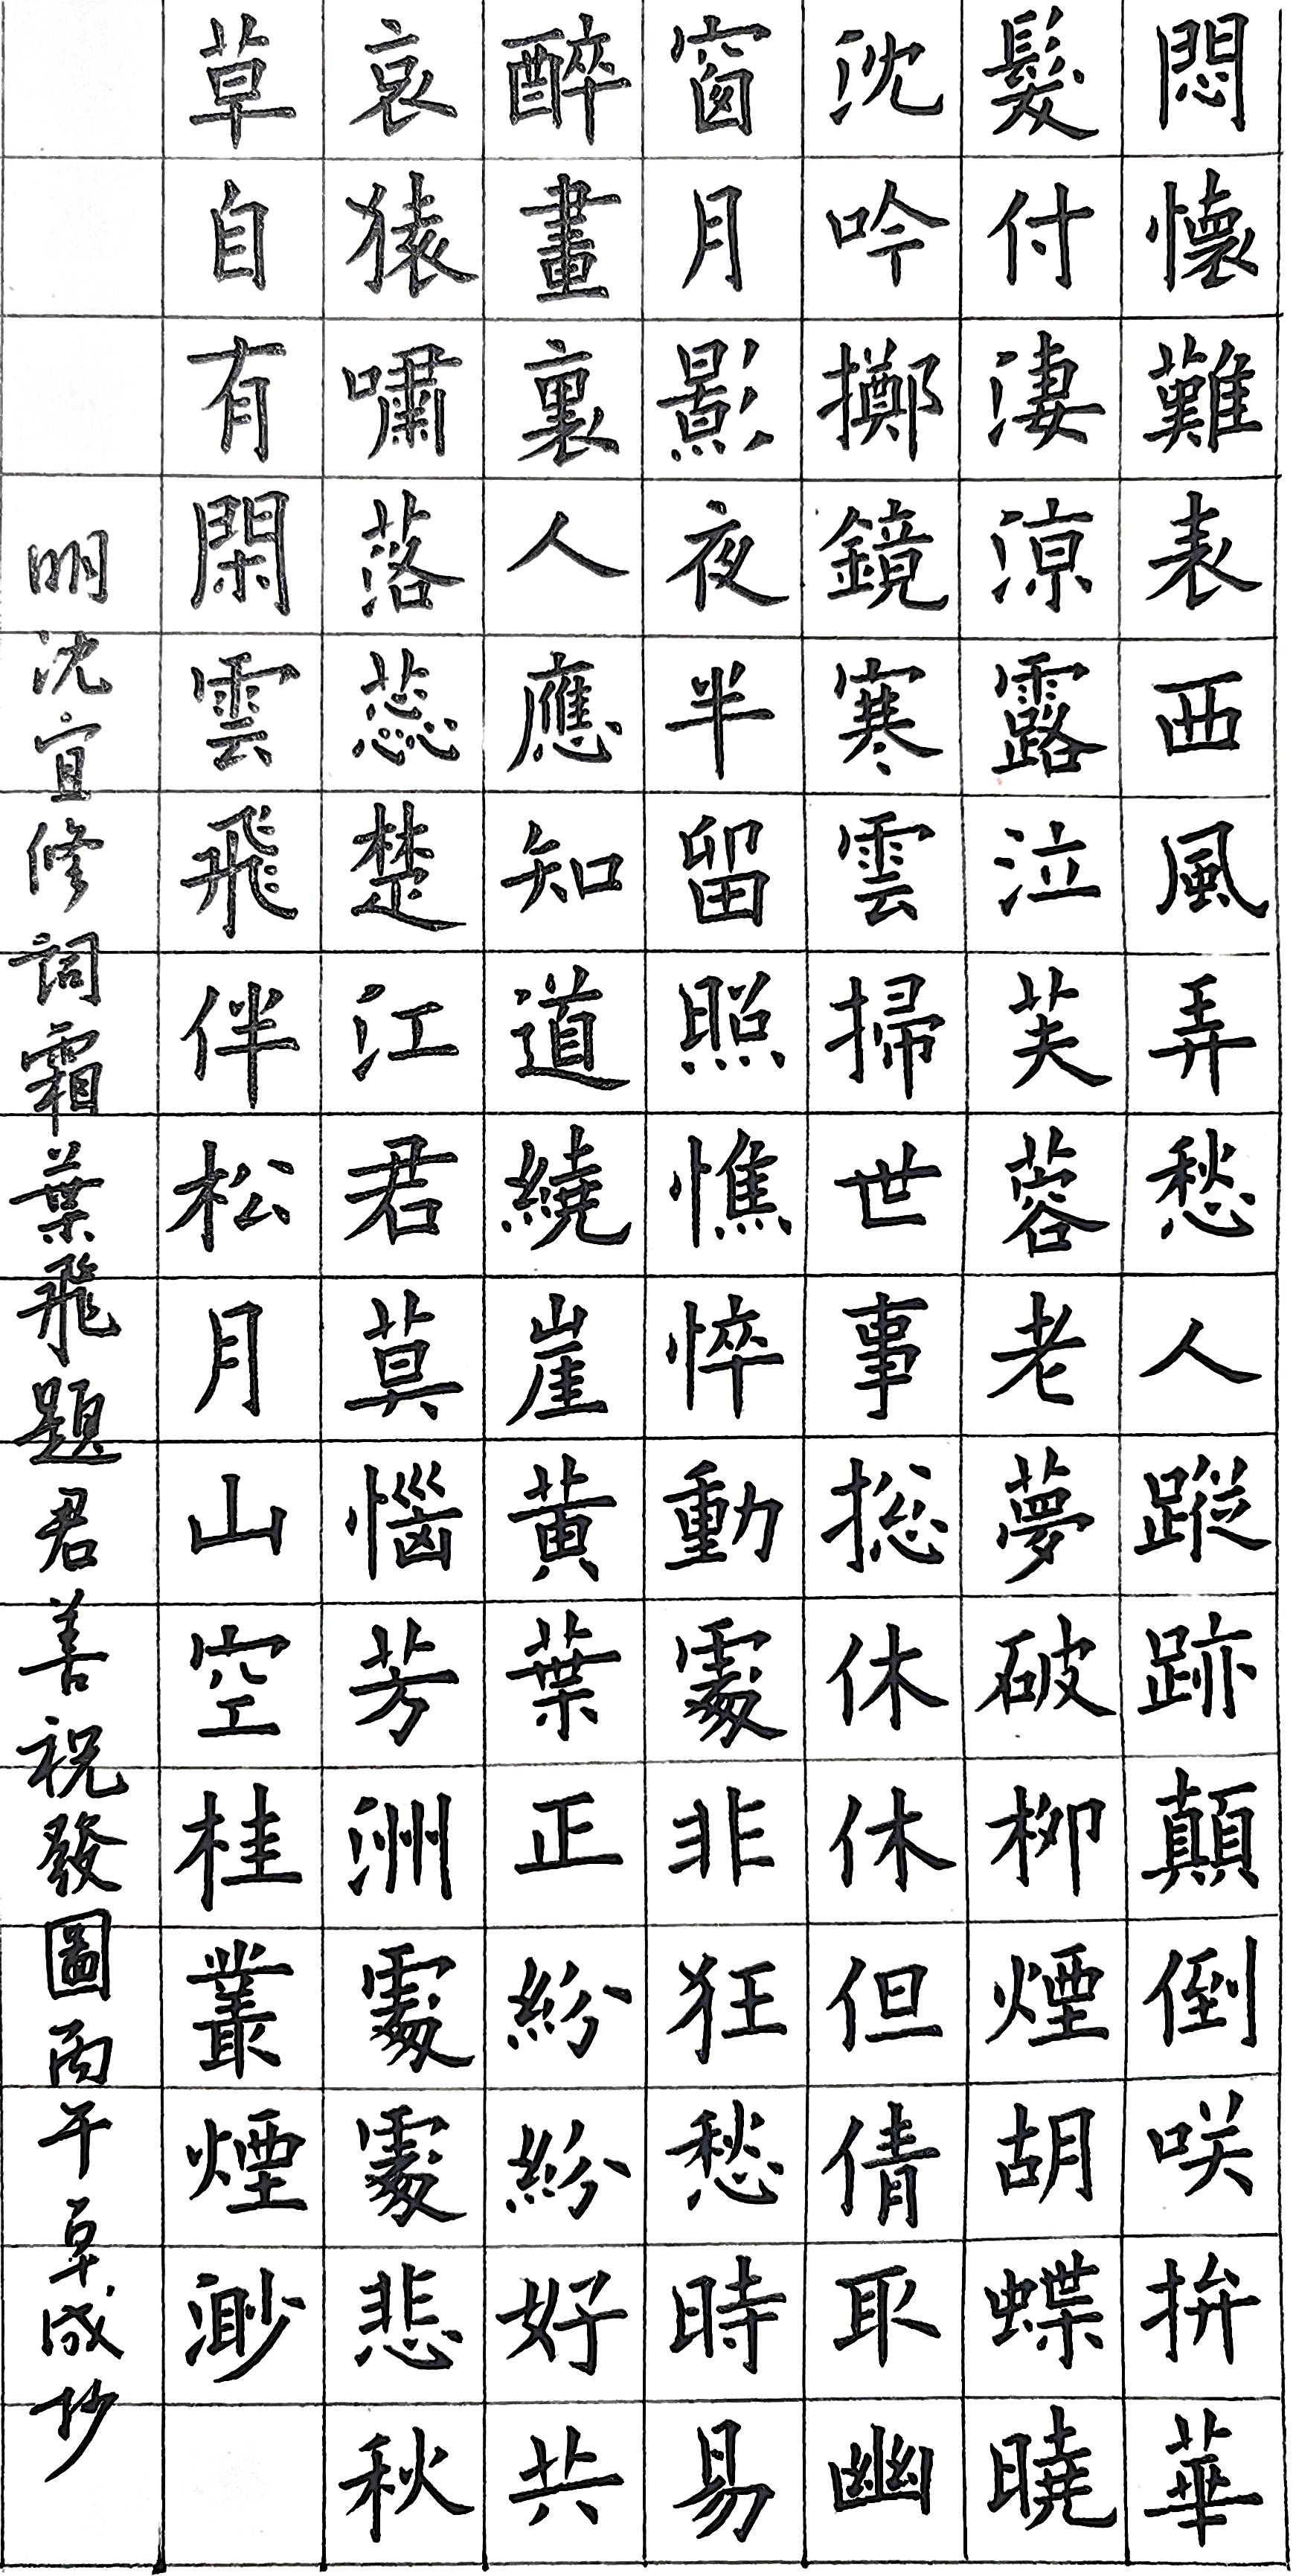 悶懷難表西風弄愁人蹤跡顛倒咲拚華
髮付淒涼露泣芙蓉老夢破柳煙胡蝶曉
沈吟擲鏡寒雲掃世事捴休休但倩取幽
窗月影夜半留照憔悴動處非狂愁時易
醉畫裏人應知道繞崖黃葉正紛紛好共
哀猿嘯落蕊楚江君莫惱芳洲處處悲秋
草自有閑雲飛伴松月山空桂叢煙渺
明沈宜修詞霜葉飛題君善祝發圖丙午草成抄